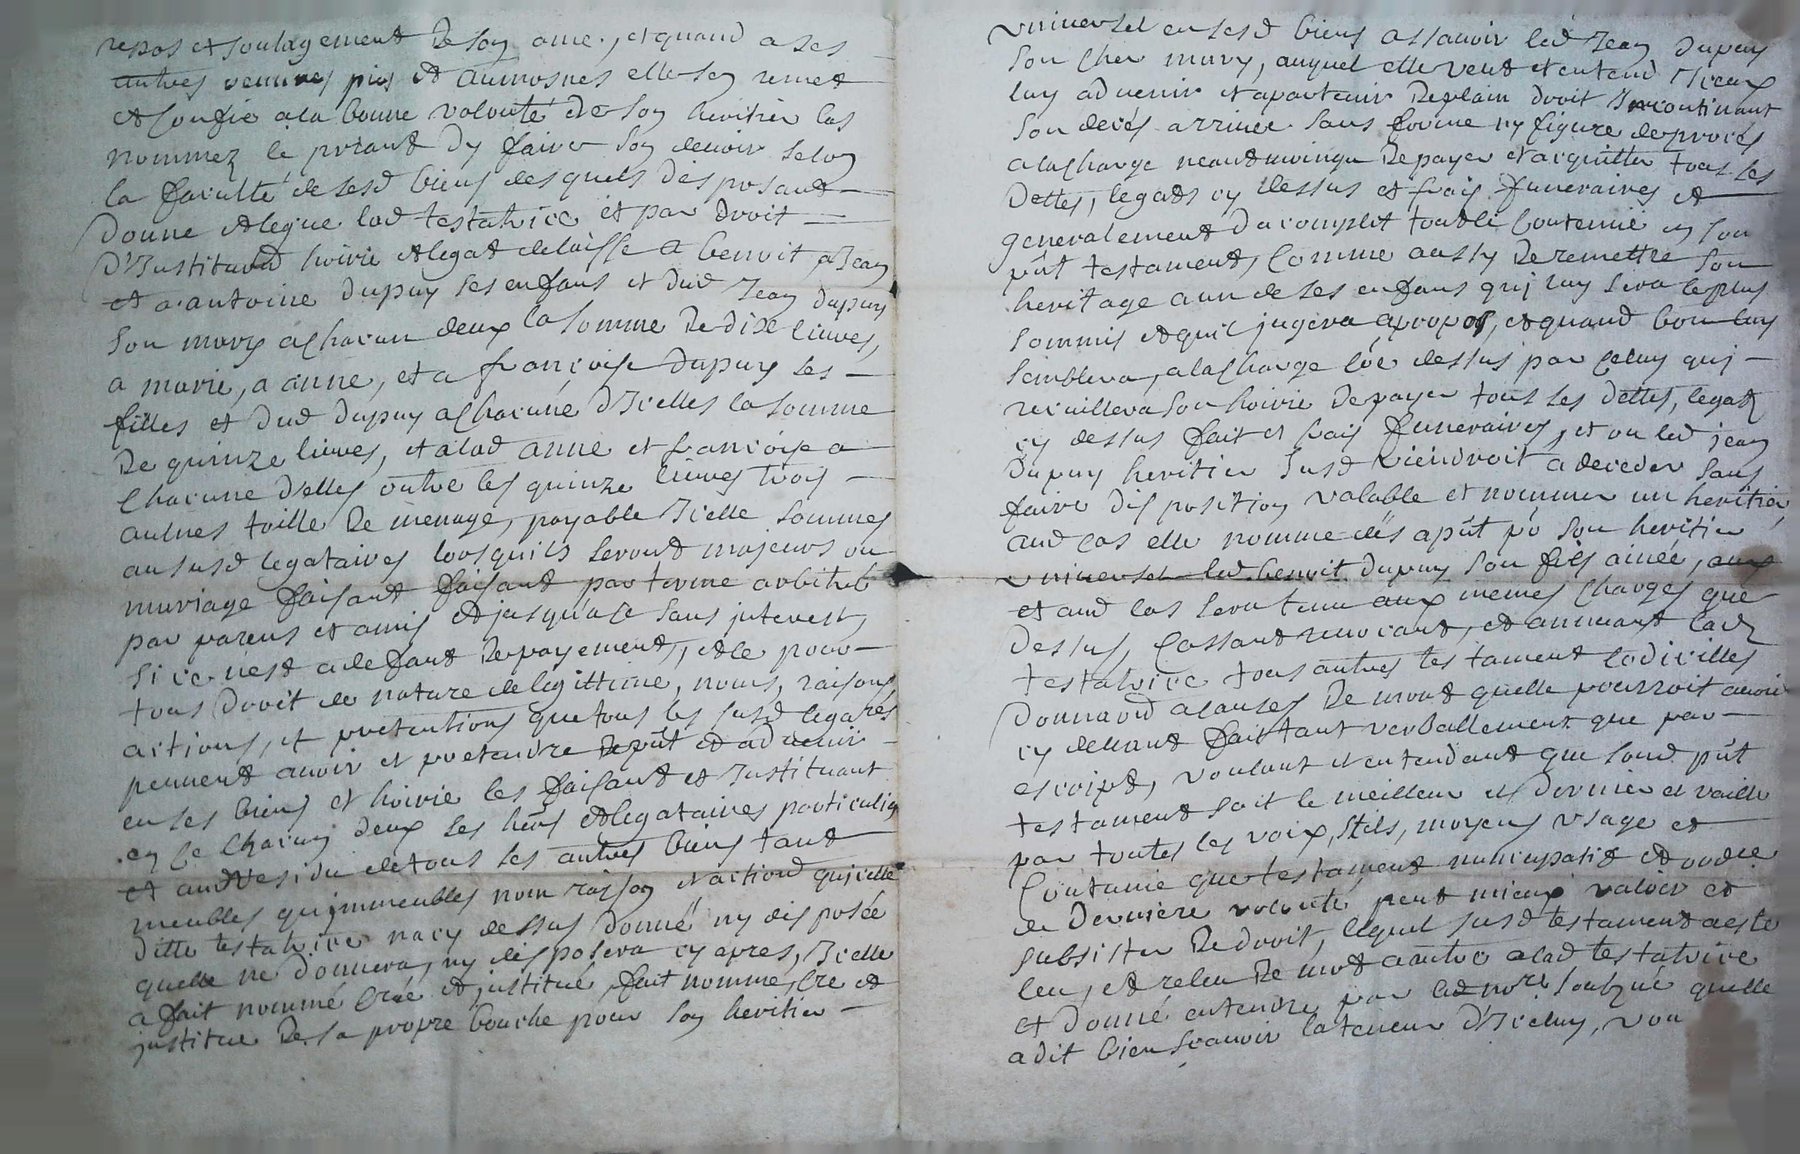 repos et soulagement de son ame, et quand a ses
autres oeuvres pies et aumosnes elle sen remet
et confie a la bonne volonté de son heritier bas
nommez le priant dy faire son devoir selon
la faculté de sesd biens desquels disposant
donne et legue lad testatrice et par droit
d'Institund hoirie et legat delaisse a benoit a Jean
et a antoine dupuy ses enfans et dud Jean dupuy
son mary a chacun deux la somme de dix livres,
a marie, a anne, et a françoise dupuy ses
filles et dud dupuy a chacune d'Icelles la somme
de quinze livres, et a lad anne et françoise a
chacune d'elles outre les quinze livres trois
aulnes toille de menage, payable Icelle sommes
aususd legataires lorsquils seront majeurs ou
mariage faisant faisant par terme arbitreb
par parens et amis et jusqu'a ce sans interest,
si ce nest a defaut de payement, et le pour
tous droit de nature de legittime, noms, raisons
actions, et pretentions que tous les susd legatrés
peuvent avoir et pretendre de pût et advenir
en ses biens et hoirie les faisant et Instituant
en ce chacun deux ses hers et legataires particuliers
et aud residu de tous ses autres biens tant
meubles qu'jmmeubles nom raison et actiond quicelle
ditte testatrice na cy dessus donné ny disposée
quelle ne donnera, ny disposera cy apres, Icelle
a fait nommé crée et jnstitué, fait nomme, cre et
jnstitue de sa propre bouche pour son heritier
universel en sesd biens assavoir led Jean dupuy
son cher mary, auquel elle veut et entend Iceux
luy advenir et apartenir de plain droit Incontinant
son decés arrivée sans forme ny figure de procés
a la charge neantmoings de payer et acquitter tous les
dettes, legats cy dessus et frais funeraires et
generalement dacomplir toutle contenue en son
pût testament, comme aussy de remettre son
heritage a un de ses enfans quj luy sera le plus
sommis et quil jugera apropos, et quand bon luy
semblera, a la charge loé dessus par celuy quj
recuillera son hoirie de payer tous ses dettes, legatz
cy dessus fait et frais funeraires, et ou led jean
dupuy heritier susd viendroit a deceder sans
faire disposition valable et nommer un heritier,
aud cas elle nomme dés apût pô son heritier
universel led benoit dupuy son fils aîneé, aux
et aud cas sera tenu aux memes charges que
dessus, cassant revocant, et annuant ladz
testatrice tous autres testament codicilles
donnaond a causes de mort quelle pourroit avoir
cy devant fait tant verballement que par
escript, voulant et entendant que sond pût
testament soit le meilleur et dernier et vaille
par toutes les voix, stils, moyens usage et
Coutume que testament nuncupatif et ordre
de derniere volonté, peut mieux valoir et
subsister de droit, lequel susd testament a esté
leu, et releu de mot a autre a lad testatrice
et donné entendre par led nore soubzné quelle
a dit bien scavoir la teneur d'Iceluy, vou